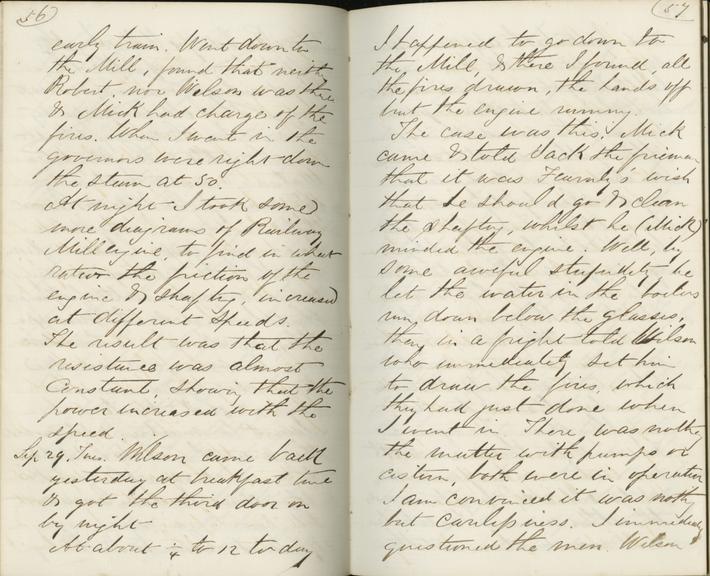 56
early train. Went down to
the Mill, found that neith
Robert, nor Wilson was there
& Mick had charge of the
fires. When I went in the
governors were right down
the steam at 50.
At night I took some
more diagrams of Railway
Mill engine, to find in what
ratio the friction of the
engine & shafting, increased
at different speeds.
The result was that the
resistance was almost
Constant, showing that the
power increased with the
speed.
Sep. 29. Tues. Wilson came back
yesterday at breakfast time
& got the third door on
by night
At about ¼ to 12 to day
57
I happened to go down to
the Mill, & there I found, all
the fires drawn, the hands off
but the engine running.
The case was this, Mick
came & told Jack the fireman
that it was wish
that he should go & clean
the shafting, whilst he (Mick)
minded the engine. Well, by
some aweful stupidity he
let the water in the boilers
run down below the glasses,
they in a fright told Wilson
who immediately set him
to draw the fires, which
they had just done when
I went in There was nothg
the matter with pumps or
cistern, both were in operation
I am convinced it was nothg
but carelessness. I immediately
questioned the men. Wilson